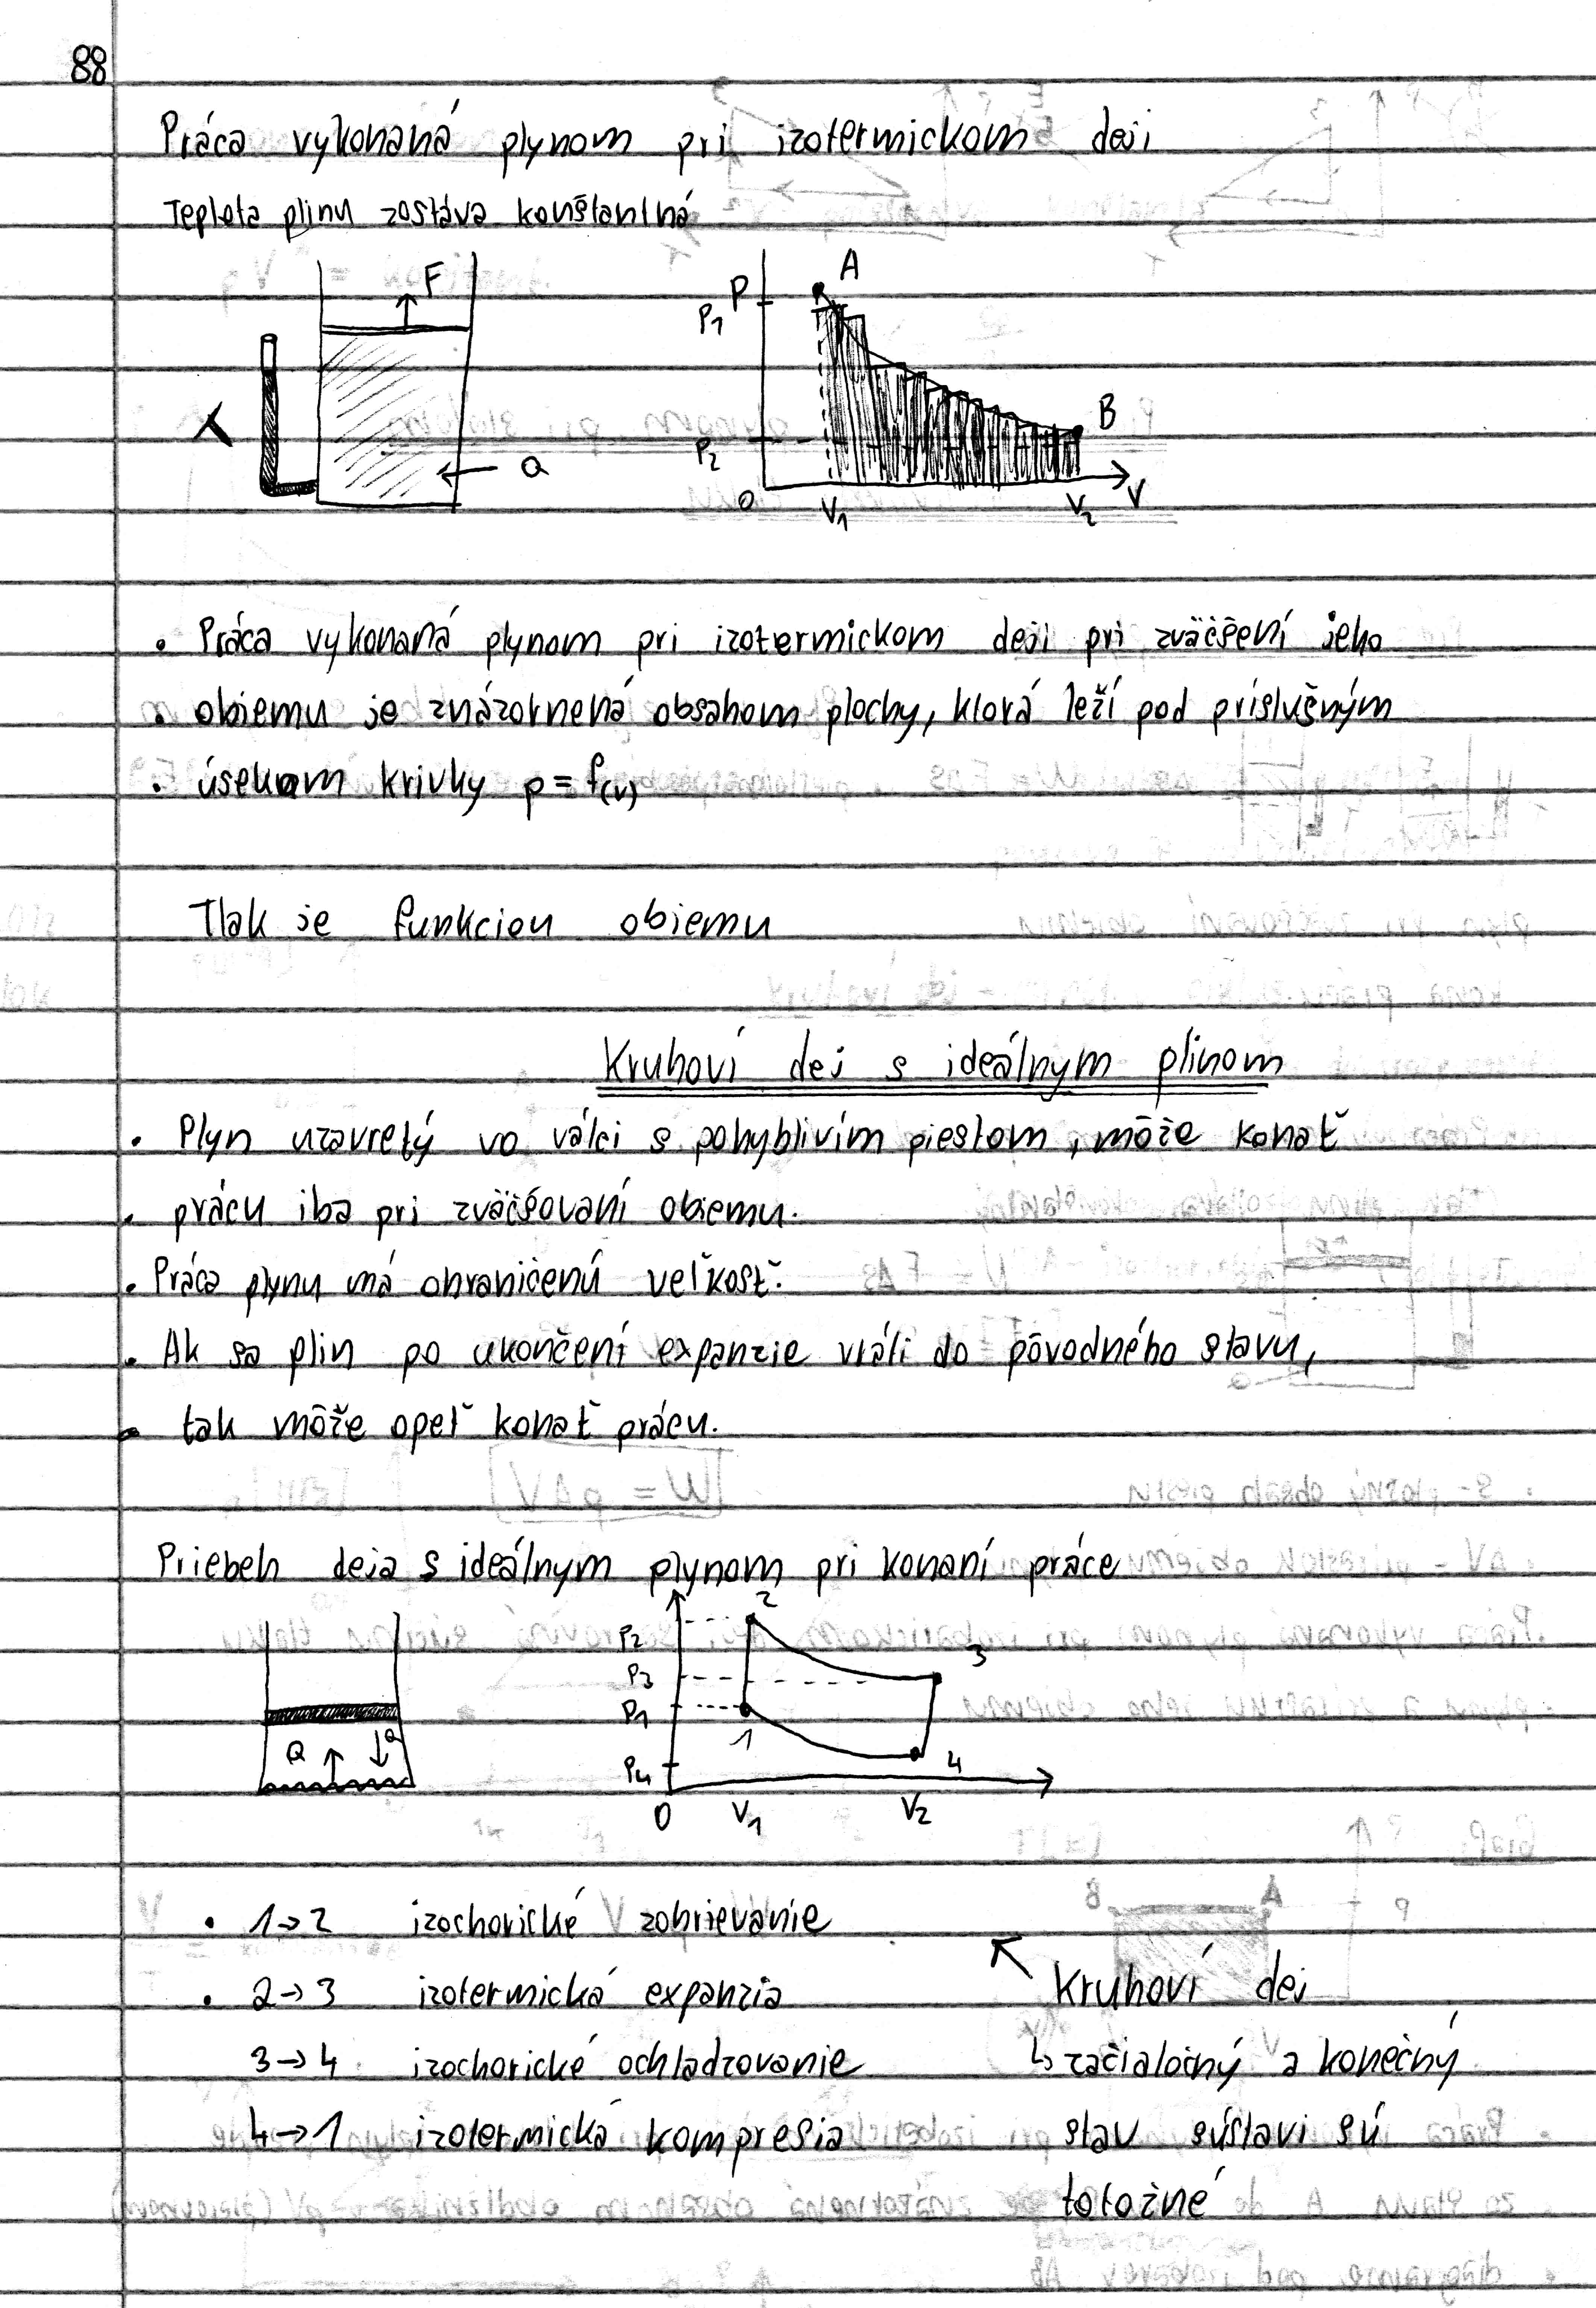 88
Práca vykonaná plynom pri izotermickom deji
Teplota plinu zostáva konštantná
F
Q
P
A
P1
P2
B
0
V1
V2
V
. Práca vykonaná plynom pri izotermickom deji pri zväčšení jeho
. objemu je znázornená obsahom plochy, ktorá leží pod príslušným
. úsekom krivky p = f(v)
Tlak je funkciou objemu
Kruhoví dej s ideálnym plinom
. Plyn uzavretý vo válci s pohyblivím piestom, môže konať
. prácu iba pri zväčšovaní objemu.
. Práca plynu má ohraničenú veľkosť.
. Ak sa plin po ukončení expanzie vráti do pôvodného stavu,
. tak môže opeť konať prácu.
Priebeh deja s ideálnym plynom pri konaní práce
Q
P2
P3
P1
P4
2
3
1
4
0
V1
V2
. 1→2 izochorické zohrievanie
. 2→3 izotermická expanzia
3→4 izochorické ochladzovanie
4→1 izotermická kompresia
Kruhoví dej
↳ začiatočný a konečný
stav sústavi sú
totožné